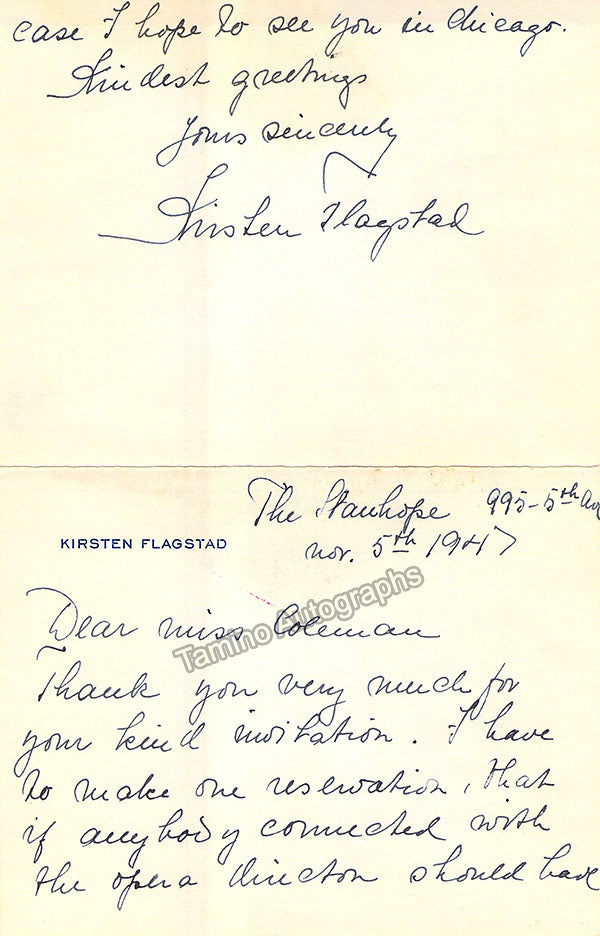 case I hope to see you in Chicago.
Kindest greetings
Yours sincerely
Kirsten Flagstad
The Stanhope 995-5th Ave
KIRSTEN FLAGSTAD
nov. 5th 1947
Dear miss Coleman
Tamino Autographs
Thank you very much for
your kind invitation. I have
to make one reservation, that
if anybody connected with
the opera direction should have